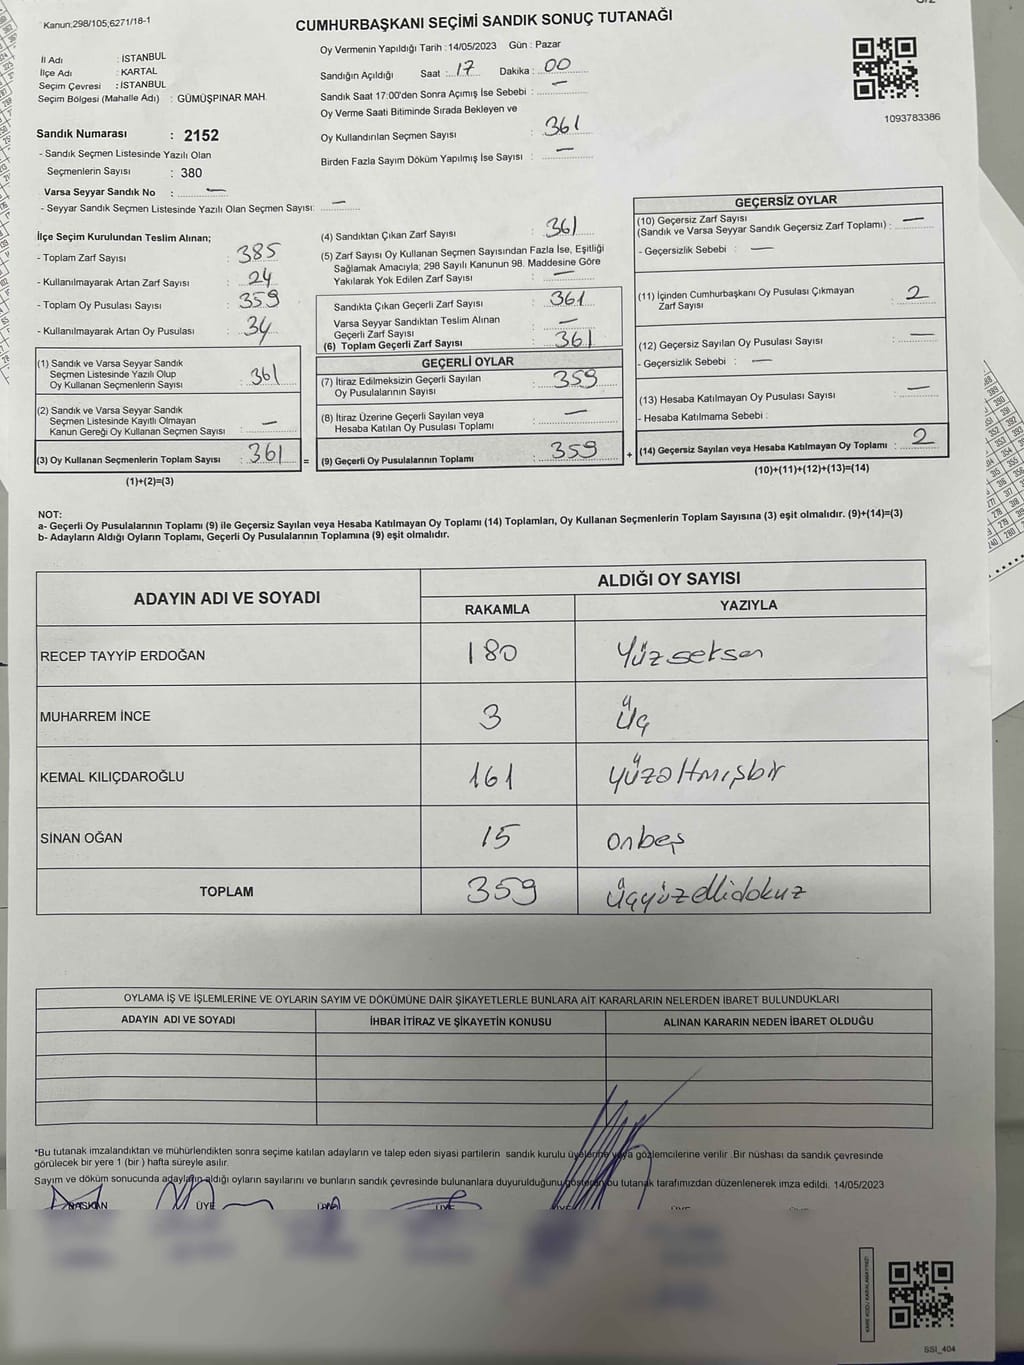 Kanun;298/105;6271/18-1
CUMHURBAŞKANI SEÇİMİ SANDIK SONUÇ TUTANAĞI
İl Adı : İSTANBUL
İlçe Adı : KARTAL
Seçim Çevresi : İSTANBUL
Seçim Bölgesi (Mahalle Adı) : GÜMÜŞPINAR MAH.
Oy Vermenin Yapıldığı Tarih : 14/05/2023 Gün : Pazar
Sandığın Açıldığı Saat : 17 Dakika : 00
Sandık Saat 17:00'den Sonra Açımış İse Sebebi : —
Oy Verme Saati Bitiminde Sırada Bekleyen ve
Oy Kullandırılan Seçmen Sayısı : 361
Birden Fazla Sayım Döküm Yapılmış İse Sayısı : —
1093783386
Sandık Numarası : 2152
- Sandık Seçmen Listesinde Yazılı Olan
Seçmenlerin Sayısı : 380
Varsa Seyyar Sandık No : —
- Seyyar Sandık Seçmen Listesinde Yazılı Olan Seçmen Sayısı: —
İlçe Seçim Kurulundan Teslim Alınan;
- Toplam Zarf Sayısı : 385
- Kullanılmayarak Artan Zarf Sayısı : 24
- Toplam Oy Pusulası Sayısı : 359
- Kullanılmayarak Artan Oy Pusulası : 34
(1) Sandık ve Varsa Seyyar Sandık
Seçmen Listesinde Yazılı Olup
Oy Kullanan Seçmenlerin Sayısı : 361
(2) Sandık ve Varsa Seyyar Sandık
Seçmen Listesinde Kayıtlı Olmayan
Kanun Gereği Oy Kullanan Seçmen Sayısı : —
(3) Oy Kullanan Seçmenlerin Toplam Sayısı : 361
(1)+(2)=(3)
(4) Sandıktan Çıkan Zarf Sayısı : 361
(5) Zarf Sayısı Oy Kullanan Seçmen Sayısından Fazla İse, Eşitliği
Sağlamak Amacıyla; 298 Sayılı Kanunun 98. Maddesine Göre
Yakılarak Yok Edilen Zarf Sayısı : —
Sandıkta Çıkan Geçerli Zarf Sayısı : 361
Varsa Seyyar Sandıktan Teslim Alınan
Geçerli Zarf Sayısı : —
(6) Toplam Geçerli Zarf Sayısı : 361
GEÇERLİ OYLAR
(7) İtiraz Edilmeksizin Geçerli Sayılan
Oy Pusulalarının Sayısı : 359
(8) İtiraz Üzerine Geçerli Sayılan veya
Hesaba Katılan Oy Pusulası Toplamı : —
= (9) Geçerli Oy Pusulalarının Toplamı : 359
GEÇERSİZ OYLAR
(10) Geçersiz Zarf Sayısı
(Sandık ve Varsa Seyyar Sandık Geçersiz Zarf Toplamı) : —
- Geçersizlik Sebebi : —
(11) İçinden Cumhurbaşkanı Oy Pusulası Çıkmayan
Zarf Sayısı : 2
(12) Geçersiz Sayılan Oy Pusulası Sayısı : —
- Geçersizlik Sebebi : —
(13) Hesaba Katılmayan Oy Pusulası Sayısı : —
- Hesaba Katılmama Sebebi :
+ (14) Geçersiz Sayılan veya Hesaba Katılmayan Oy Toplamı : 2
(10)+(11)+(12)+(13)=(14)
NOT:
a- Geçerli Oy Pusulalarının Toplamı (9) ile Geçersiz Sayılan veya Hesaba Katılmayan Oy Toplamı (14) Toplamları, Oy Kullanan Seçmenlerin Toplam Sayısına (3) eşit olmalıdır. (9)+(14)=(3)
b- Adayların Aldığı Oyların Toplamı, Geçerli Oy Pusulalarının Toplamına (9) eşit olmalıdır.
ADAYIN ADI VE SOYADI ALDIĞI OY SAYISI
RAKAMLA YAZIYLA
RECEP TAYYİP ERDOĞAN 180 Yüzseksen
MUHARREM İNCE 3 Üç
KEMAL KILIÇDAROĞLU 161 yüzaltmışbir
SİNAN OĞAN 15 onbeş
TOPLAM 359 üçyüzellidokuz
OYLAMA İŞ VE İŞLEMLERİNE VE OYLARIN SAYIM VE DÖKÜMÜNE DAİR ŞİKAYETLERLE BUNLARA AİT KARARLARIN NELERDEN İBARET BULUNDUKLARI
ADAYIN ADI VE SOYADI İHBAR İTİRAZ VE ŞİKAYETİN KONUSU ALINAN KARARIN NEDEN İBARET OLDUĞU
*Bu tutanak imzalandıktan ve mühürlendikten sonra seçime katılan adayların ve talep eden siyasi partilerin sandık kurulu üyelerine veya gözlemcilerine verilir .Bir nüshası da sandık çevresinde
görülecek bir yere 1 (bir ) hafta süreyle asılır.
Sayım ve döküm sonucunda adayların aldığı oyların sayılarını ve bunların sandık çevresinde bulunanlara duyurulduğunu gösteren bu tutanak tarafımızdan düzenlenerek imza edildi. 14/05/2023
BAŞKAN ÜYE ÜYE
SSI_404